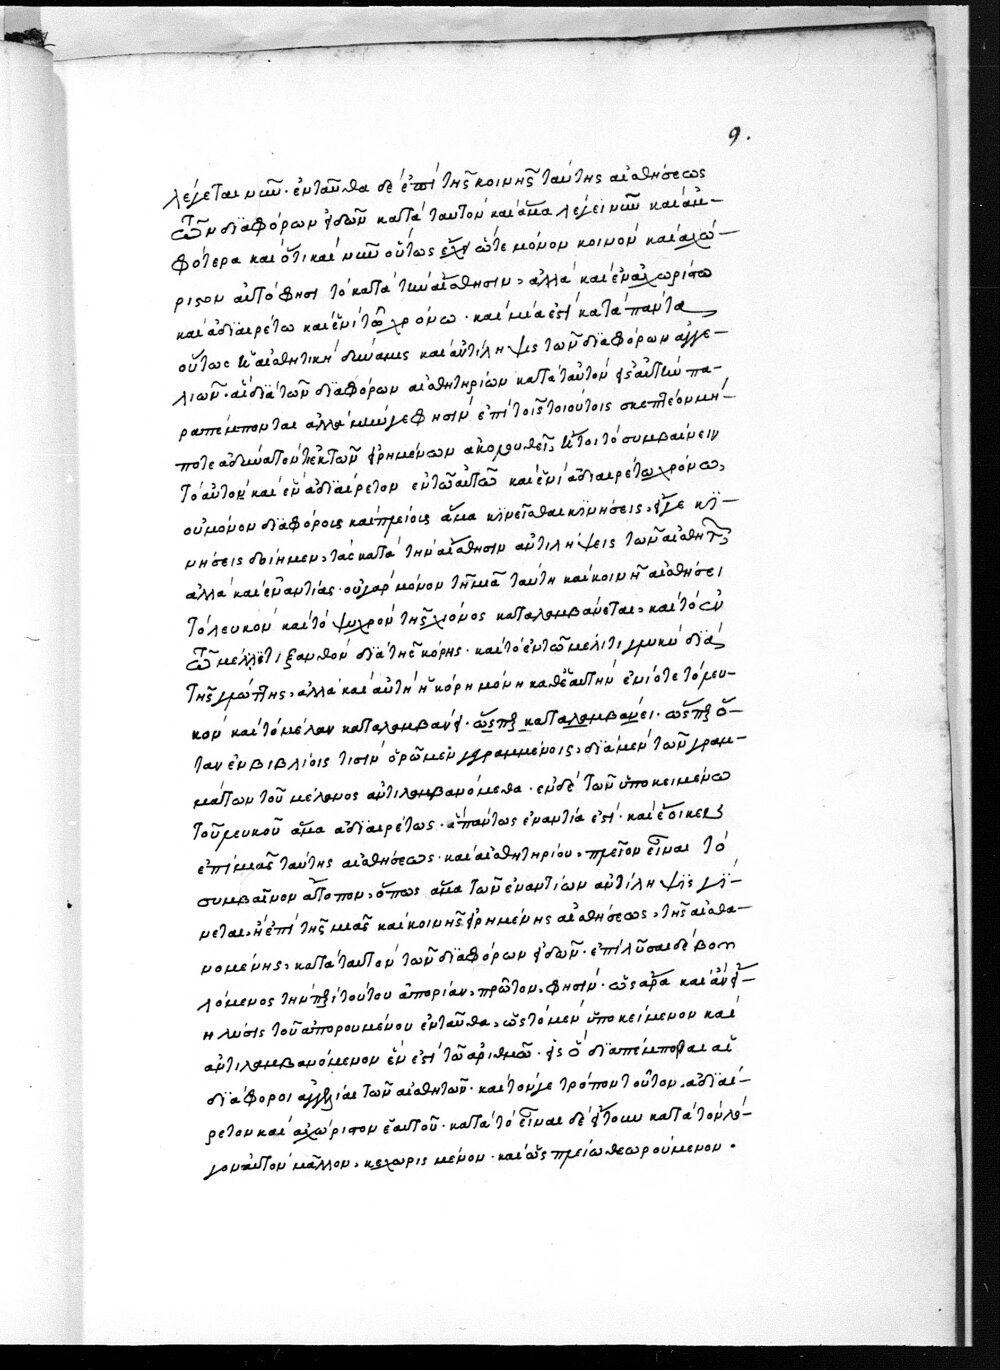 9.
λέγεται νῦν· ἐνταῦθα δὲ ἐπὶ τῆς κοινῆς ταύτης αἰσθήσεως
τῶν διαφόρων εἰδῶν κατὰ ταυτὸν καὶ ἅμα λέγει νῦν καὶ ἀμ-
φότερα καὶ ὅτι καὶ νῦν οὕτως ὥστε μόνον κοινὸν καὶ ἀχώ-
ριστον αὐτό φησι τὸ κατὰ τὴν αἴσθησιν, ἀλλὰ καὶ ἐν ἀχωρίστω
καὶ ἀδιαιρέτω καὶ ἑνὶ τῶ χρόνω· καὶ μία ἐστὶ κατὰ πάντα
οὕτως ἡ αἰσθητικὴ δύναμις καὶ ἀντίληψις τῶν διαφόρων ἀγγε-
λιῶν· αἳ διὰ τῶν διαφόρων αἰσθητηρίων κατὰ ταὐτὸν εἰς αὐτὴν πα-
ραπέμπονται ἀλλὰ μὴν γε φησὶν ἐπὶ τοῖς τοιούτοις σκεπτέον μή-
ποτε ἀδύνατόν τι ἐκ τῶν εἰρημένων ἀκολουθεῖ, ἤτοι τὸ συμβαίνειν
τὸ αὐτὸν καὶ ἓν ἀδιαίρετον ἐν τῶ αὐτῶ καὶ ἑνὶ ἀδιαιρέτω χρόνω,
οὐ μόνον διαφόροις καὶ πλείοις ἅμα κινεῖσθαι κινήσεις, εἴγε κι-
νήσεις δοίημεν, τὰς κατὰ τὴν αἴσθησιν ἀντιλήψεις τῶν αἰσθητῶν
ἀλλὰ καὶ ἐναντίας· οὐ γὰρ μόνον τῆ μιᾶ ταύτη καὶ κοινῆ αἰσθήσει
τὸ λευκὸν καὶ τὸ ψυχρὸν τῆς χιόνος καταλαμβάνεται, καὶ τὸ ἐν
τῶ μέλιτι ξανθὸν διὰ τῆς κόρης· καὶ τὸ ἐν τῶ μέλιτι γλυκὺ διὰ
τῆς γλώττης, ἀλλὰ καὶ αὐτὴ ἡ κόρη μόνη καθ' ἑαυτὴν ἐνίοτε τὸ λευ-
κὸν καὶ τὸ μέλαν καταλαμβάνει· ὥσπερ καταλαμβάνει· ὥσπερ ὅ-
ταν ἐν βιβλίοις τισὶν ὁρῶμεν γεγραμμένοις, διὰ μὲν τῶν γραμ-
μάτων τοῦ μέλανος ἀντιλαμβανόμεθα· ἐν δὲ τῶν ὑποκειμένω
τοῦ λευκοῦ ἅμα ἀδιαιρέτως· ἁπάντως ἐναντία ἐστί· καὶ ἔοικεν
ἐπὶ μιᾶς ταύτης αἰσθήσεως· καὶ αἰσθητηρίου, πλεῖον εἶναι τὸ
συμβαῖνον ἄτοπον, ὅπως ἅμα τῶν ἐναντίων ἀντίληψις γί-
νεται, ἢ ἐπὶ τῆς μιᾶς καὶ κοινῆς εἰρημένης αἰσθήσεως, τῆς αἰσθα-
νομένης, κατὰ ταυτὸν τῶν διαφόρων εἰδῶν· ἐπιλῦσαι δὲ βου
λόμενος τὴν περὶ τούτου ἀπορίαν, πρῶτον, φησίν· ὡς ἄρα καὶ ἂν εἴ-
η λύσις τοῦ ἀπορουμένου ἐνταῦθα, ὡς τὸ μὲν ὑποκείμενον καὶ
ἀντιλαμβανόμενον ἕν ἐστι τῶ ἀριθμῶ· εἰς ὃ διαπέμπονται αἱ
διάφοροι ἀγγελίαι τῶν αἰσθητῶν· καὶ τόν γε τρόπον τοῦτον, ἀδιαί-
ρετον καὶ ἀχώριστον ἑαυτοῦ· κατὰ τὸ εἶναι δὲ ἤτοι κατὰ τὸν λό-
γον αὐτὸν μᾶλλον, κεχωρισμένον· καὶ ὡς πλείω θεωρούμενον.